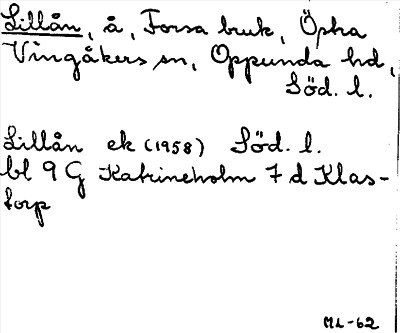 Lillån, å, Forsa bruk, Ö
Vingåkers sn, Oppunda hd,
Söd. l.
Lillån ek (1958) Söd. l.
bl 9 G Katrineholm 7 d Klas-
torp
ML-62